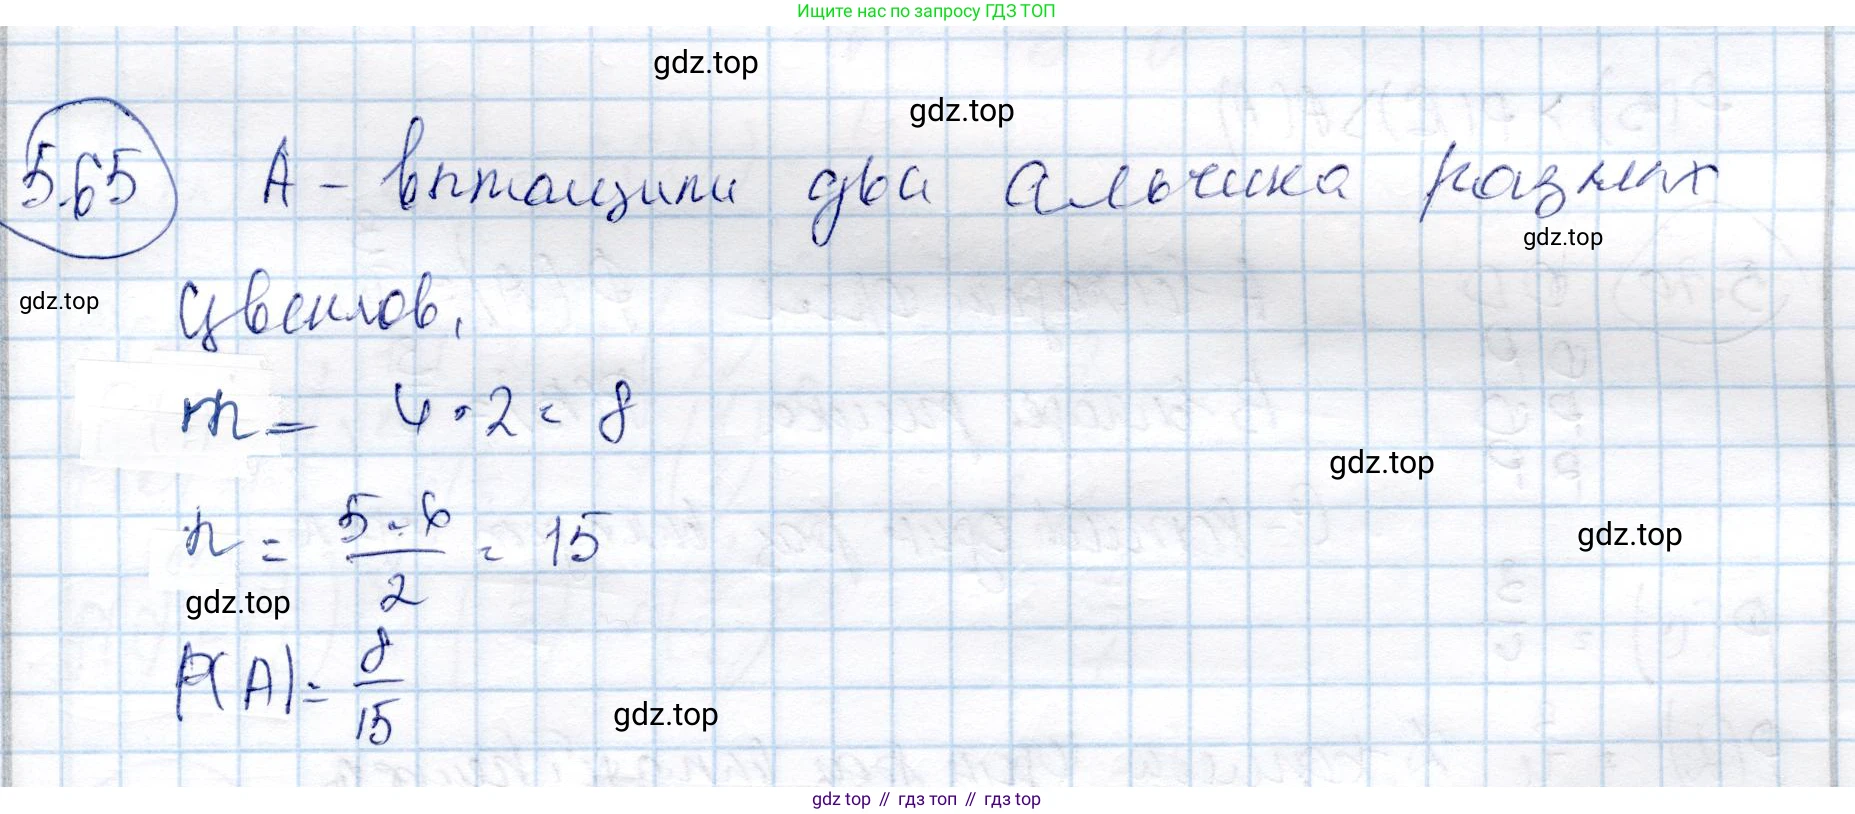 Ищите нас по запросу ГДЗ ТОП
gdz.top
gdz.top
5.65 А - вытащили два альчика разных
gdz.top
gdz.top
цветов.
m = 4 · 2 = 8
gdz.top
n = 5 · 6 / 2 = 15
gdz.top
gdz.top
P(A) = 8 / 15
gdz.top
gdz top // гдз топ // гдз top